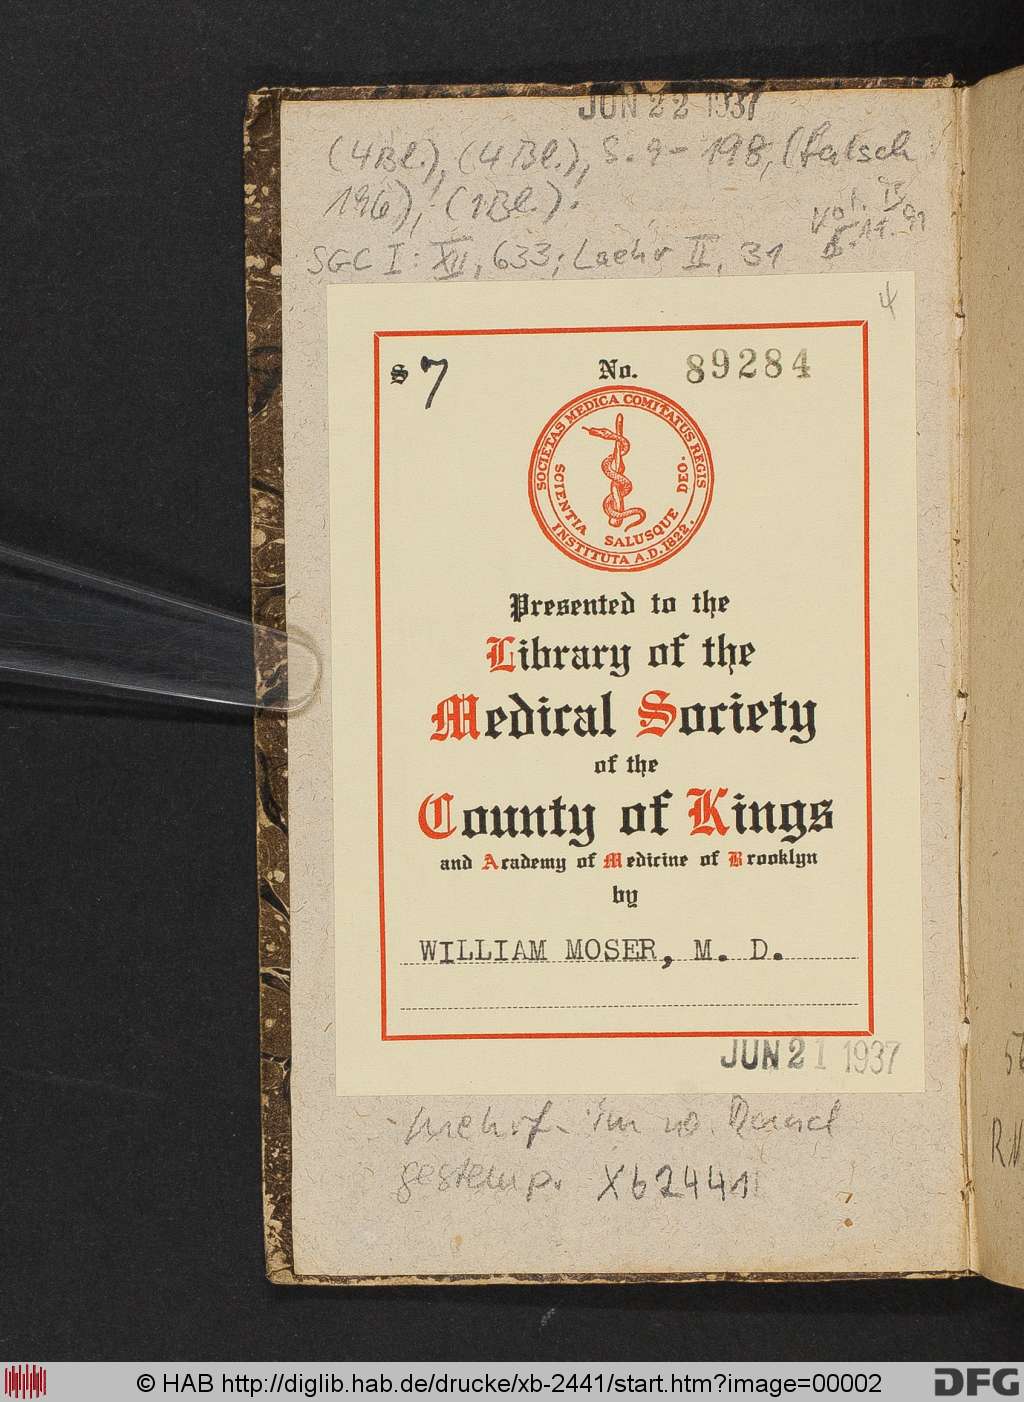 JUN 22 1937
(4 Bl.), (4 Bl.), S. 9-198, (falsch
196), (1 Bl.).
SGC I: XII, 633; Laehr II, 31
4
S 7 No. 89284
SOCIETAS MEDICA COMITATUS REGIS
SCIENTIA SALUSQUE DEO.
INSTITUTA A.D. 1822.
Presented to the
Library of the
Medical Society
of the
County of Kings
and Academy of Medicine of Brooklyn
by
WILLIAM MOSER, M. D.
JUN 21 1937
mehrf. im
gestemp. Xb 2441
© HAB http://diglib.hab.de/drucke/xb-2441/start.htm?image=00002
DFG